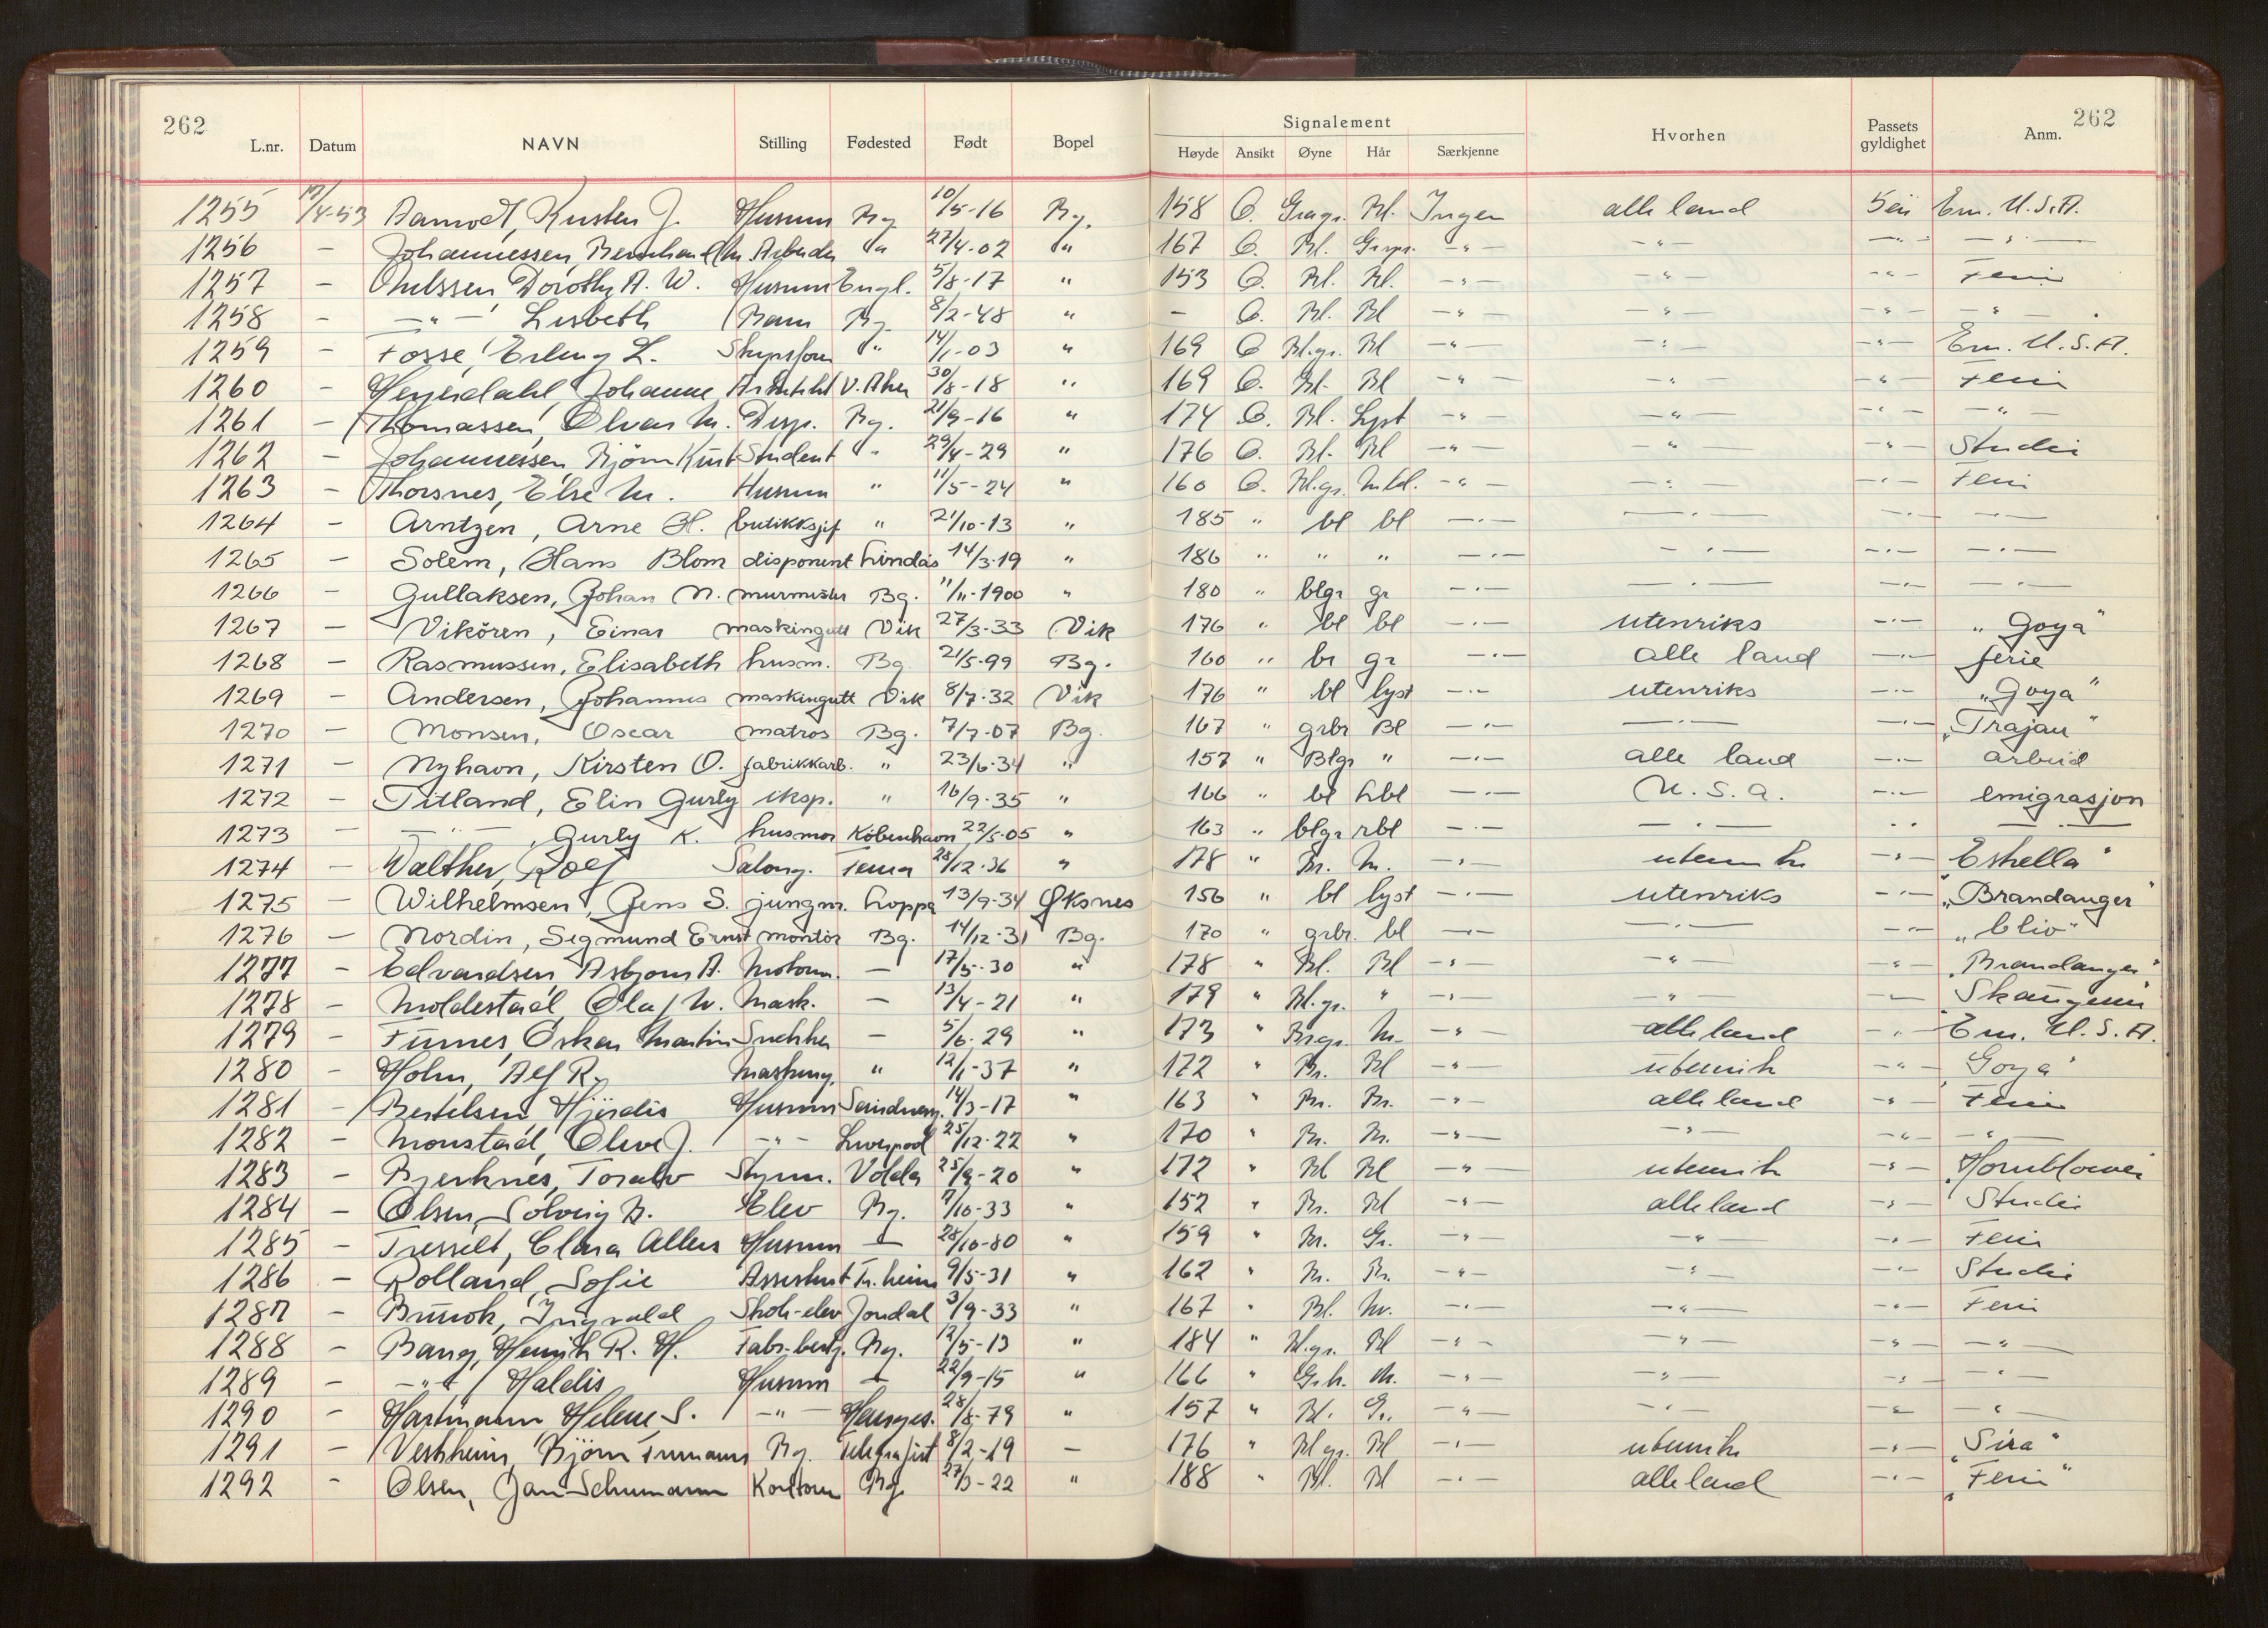 262
262
L.nr. Datum NAVN Stilling Fødested Født Bopel Signalement Høyde Ansikt Øyne Hår Særkjenne Hvorhen Passets gyldighet Anm.
1255 17/4-53 Aamodt, Kirsten J. Husmor Bg. 10/5-16 Bg. 158 O. Bl. Ingen alle land 5 år Em. U.S.A.
1256 - Johannessen, Bernhard M. Arbeider " 27/4-02 " 167 O. Bl. -"- -"- -"- -"-
1257 - Dorothy A. W. Husmor Engl. 5/8-17 " 153 O. Bl. Bl. -"- -"- -"- Ferie
1258 - -"- Lisbeth Barn Bg. 8/2-48 " - O. Bl. Bl -"- -"- -"- -"-
1259 - Fosse, Erling L. " 14/1-03 " 169 O Bl.gr. Bl -"- -"- -"- Em. U.S.A.
1260 - Heyerdahl, Johanne Arkitekt V. Aker 30/8-18 " 169 O. Bl. Bl -"- -"- -"- Ferie
1261 - Thomassen, Olvar M. Disp. Bg. 21/9-16 " 174 O. Bl. Lyst -"- -"- -"- -"-
1262 - Johannessen, Bjørn Knut Student " 29/4-29 " 176 O. Bl. Bl -"- -"- -"- Studie
1263 - Thorsnes, Else M. Husmor " 11/5-24 " 160 O. Bl.gr. M.bl. -"- -"- -"- Ferie
1264 - Arntzen, Arne H. butikksjef " 21/10-13 " 185 " bl bl -"- -"- -"- -"-
1265 - Solem, Hans Blom disponent Lindås 14/3-19 " 186 " " " -"- -"- -"- -"-
1266 - Gullaksen, Johan N. murmester Bg. 11/11-1900 " 180 " blgr gr -"- -"- -"- -"-
1267 - Vikören, Einar maskingutt Vik 27/3-33 Vik 176 " bl bl -"- utenriks -"- "Goya"
1268 - Rasmussen, Elisabeth husm. Bg. 21/5-99 Bg. 160 " br gr -"- alle land -"- ferie
1269 - Andersen, Johannes maskingutt Vik 8/7-32 Vik 176 " bl lyst -"- utenriks -"- "Goya"
1270 - Monsen, Oscar matros Bg. 7/7-07 Bg. 167 " grbr Bl -"- -"- -"- "Trajan"
1271 - Nyhavn, Kirsten O. fabrikkarb. " 23/6-34 " 157 " Blgr " -"- alle land -"- arbeid
1272 - Titland, Elin Gurly eksp. " 16/9-35 " 166 " bl hbl -"- U.S.A. -"- emigrasjon
1273 - -"-, Gurly K. husmor København 22/5-05 " 163 " blgr rbl -"- -"- " -"-
1274 - Walther, Rolf Salong. 28/12-36 " 178 " Br. M. -"- utenriks -"- "Estrella"
1275 - Wilhelmsen, Jens S. jungm. Loppa 13/9-34 Øksnes 156 " bl lyst -"- utenriks -"- "Brandanger"
1276 - Nordin, Segmund Ernst montör Bg. 14/12-31 Bg. 170 " grbr. bl -"- -"- -"- "Clio"
1277 - Edvardsen, Asbjørn A. Motorm. - 17/5-30 " 178 " Bl. Bl -"- -"- -"- "Brandanger"
1278 - Moldestad, Olaf W. Mask. - 13/4-21 " 179 " Bl.gr. " -"- -"- -"-
1279 - Furnes, Oskar Martin Snekker - 5/6-29 " 173 " Br.gr. M. -"- alle land -"- Em. U.S.A.
1280 - Holm, Alf R. Masking. " 12/1-37 " 172 " Br. Bl -"- utenriks -"- "Goya"
1281 - Bertelsen, Hjørdis Husmor 14/3-17 " 163 " Br. Br. -"- alle land -"- Ferie
1282 - Monstad, Olive J. -"- Liverpool 25/12-22 " 170 " Br. M. -"- -"- -"- -"-
1283 - Bjerknes, Toralv Styrm. Volda 25/9-20 " 172 " Bl Bl -"- utenriks -"- "Hornblower"
1284 - Olsen, Solveig B. Elev Bg. 7/10-33 " 152 " Br. Bl -"- alle land -"- Studie
1285 - Tresselt, Clara Allers Husmor - 28/10-80 " 159 " Br. Gr. -"- -"- -"- Ferie
1286 - Rolland, Sofie Assistent Tr.heim 9/5-31 " 162 " Br. Br. -"- -"- -"- Studie
1287 - Ingvald Skole-elev Jondal 3/9-33 " 167 " Bl. M. -"- -"- -"- Ferie
1288 - Bang, Henrik R. H. Fabr.best. Bg. 12/5-13 " 184 " Bl.gr. Bl -"- -"- -"- -"-
1289 - -"- Haldis Husmor - 22/9-15 " 166 " M. -"- -"- -"- -"-
1290 - Hartmann, Helene S. -"- 28/8-79 " 157 " Bl. Gr. -"- -"- -"- -"-
1291 - Vestrheim, Bjørn Bg. Telegrafist 8/2-19 - 176 " Bl.gr. Bl -"- utenriks -"- "Sira"
1292 - Olsen, Jan Schumann Kontorm Bg. 27/3-22 " 188 " Bl. Bl -"- alle land -"- "Ferie"